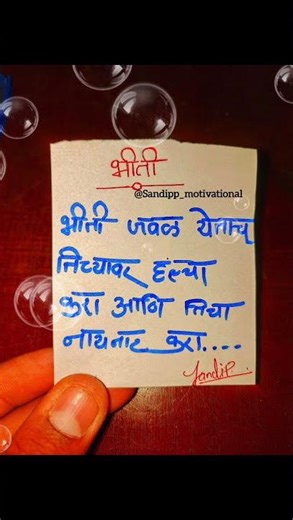 भीती
@Sandipp_motivational
भीती जवळ येताच
तिच्यावर हल्ला
करा आणि तिचा
नायनाट करा....
Sandip.